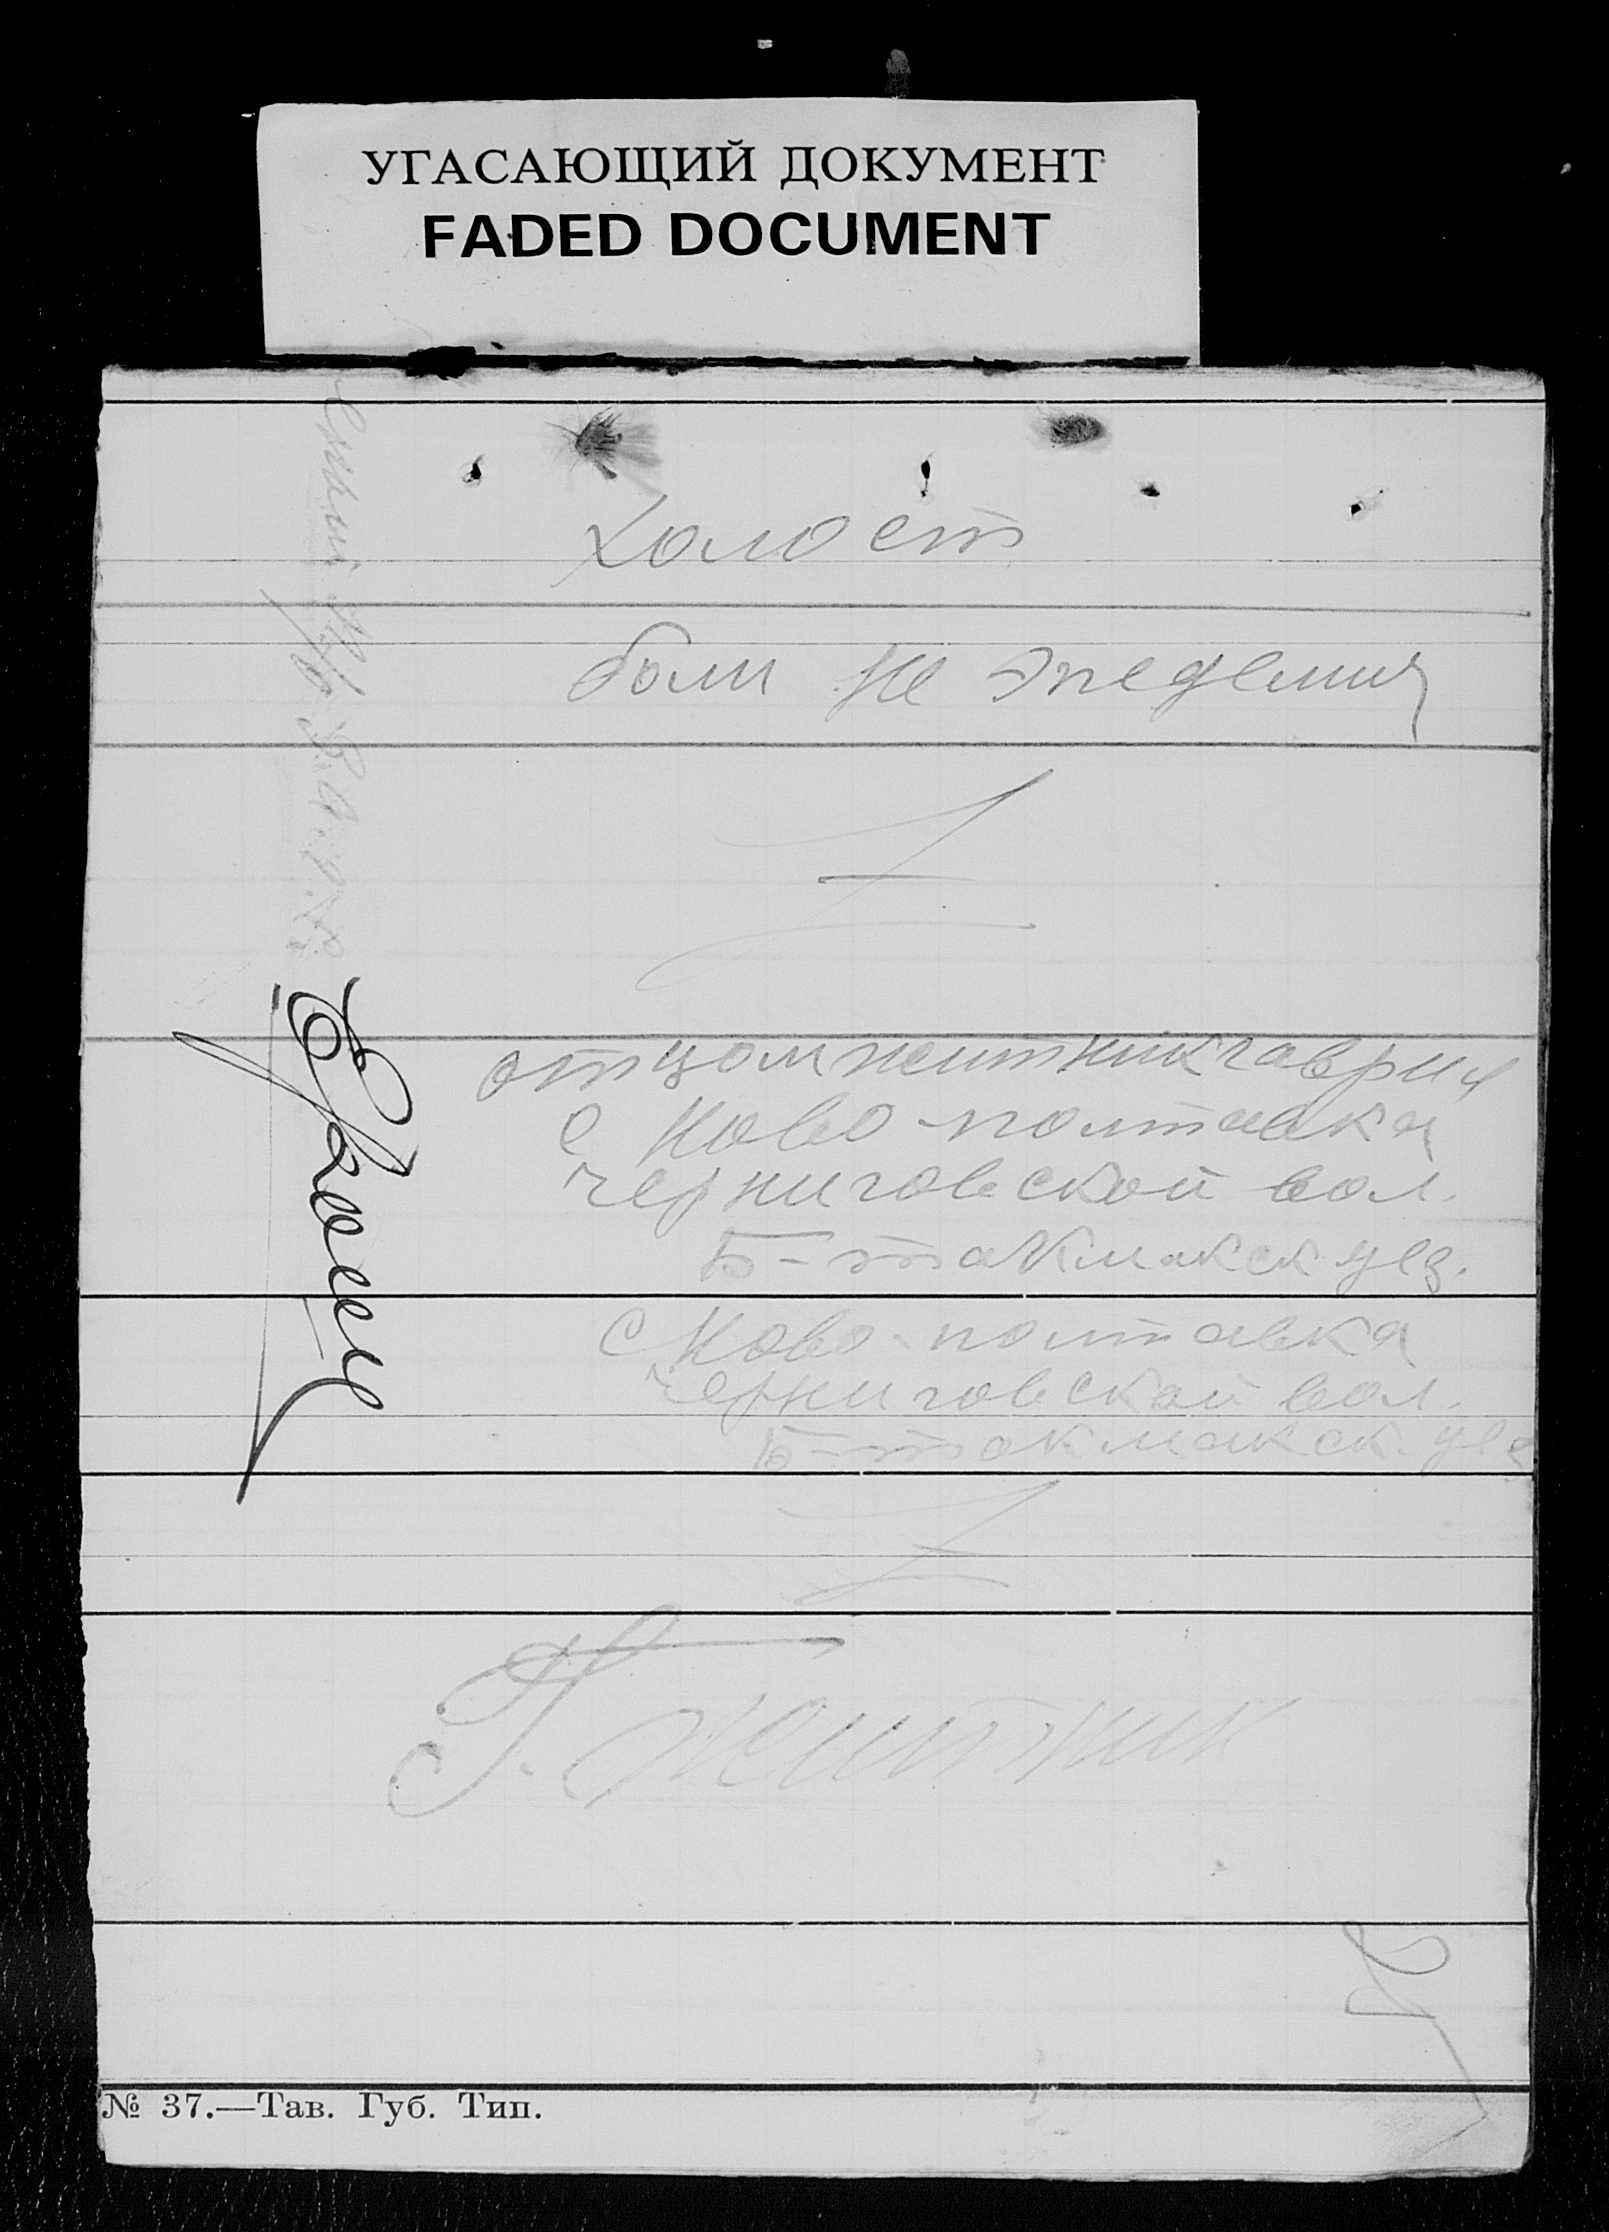 УГАСАЮЩИЙ ДОКУМЕНТ
FADED DOCUMENT
холост
боли не эпедемич
отцом житник гаврил
с Ново-полтавка
черниговской вол.
Б-такмакск уез.
с Ново-полтавка
черниговской вол.
Б-такмакск. уез
Г. Житник
№ 37.—Тав. Губ. Тип.